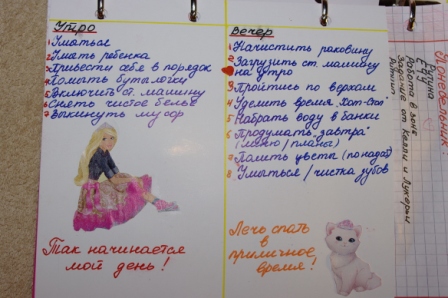 Утро
1. Уматься
2. Умать ребенка
3. Привести себя в порядок
4. Помыть бутылочку
5. Включить ст. машину
6. Снять чистое белье
7. Выкинуть мусор
Так начинается
мой день!
Вечер
1. Начистить раковину
2. Загрузить ст. машину
на утро
3. Пройтись по верхам
4. Уделить время "Хот-Спот"
5. Набрать воду в банки
6. Продумать "завтра"
(меню/планы)
7. Полить цветы (по надоб)
8. Умыться / чистка зубов
Лечь спать
в
приличное
время!
Понедельник
Рутина
Работа в зоне
Задание от Келли и